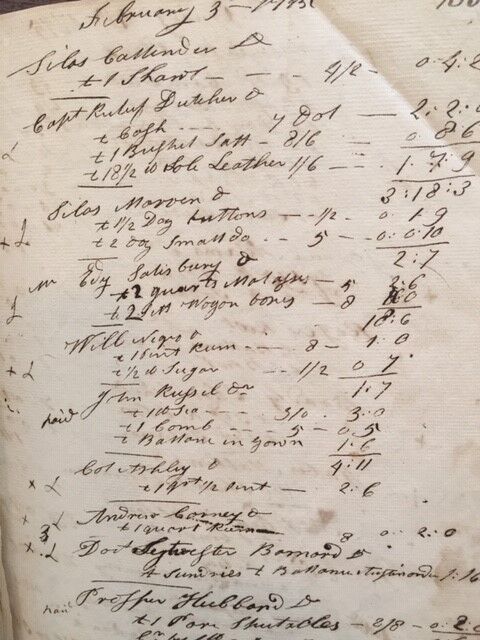 February 3 — 1785
Silas Callender D
t 1 Shawl — — — 4/2 — 0:4:2
Capt Ruluf Dutcher D
t Cash — 7 Dol — 2:2:0
L t 1 Bushel Salt — 8/6 — 0:8:6
t 18 1/2 lb Sole Leather 1/6 — 1:7:9
3:18:3
Silas Marven D
+ L t 1 1/2 Doz buttons — 1/2 — 0 1 9
t 2 doz Small do — 5 — 0:0:10
2:7
Mr Edy Salisbury D
t 2 quarts Molasses 5 2:6
L t 2 Sett Wagon boxes 8
18:6
Will Negro D
t 1 pint Rum — 8 — 1:0
+ L t 1/2 lb Sugar — 1/2 0 7
1:7
John Russel Dr
paid t 1 lb Tea — 3/0 . 3:0
t 1 Comb — 5 — 0 5
t 1:6
4:11
Col Ashley D
x L t 1 — 2:6
x L Andrew Carney D
3 t 1 quart Rum 8 0:2:0
x L Doct Sylvester Barnard D
t Sundries t 1:16
paid Prosper Hubbard D
t 1 Pare 2/8 — 0:2: